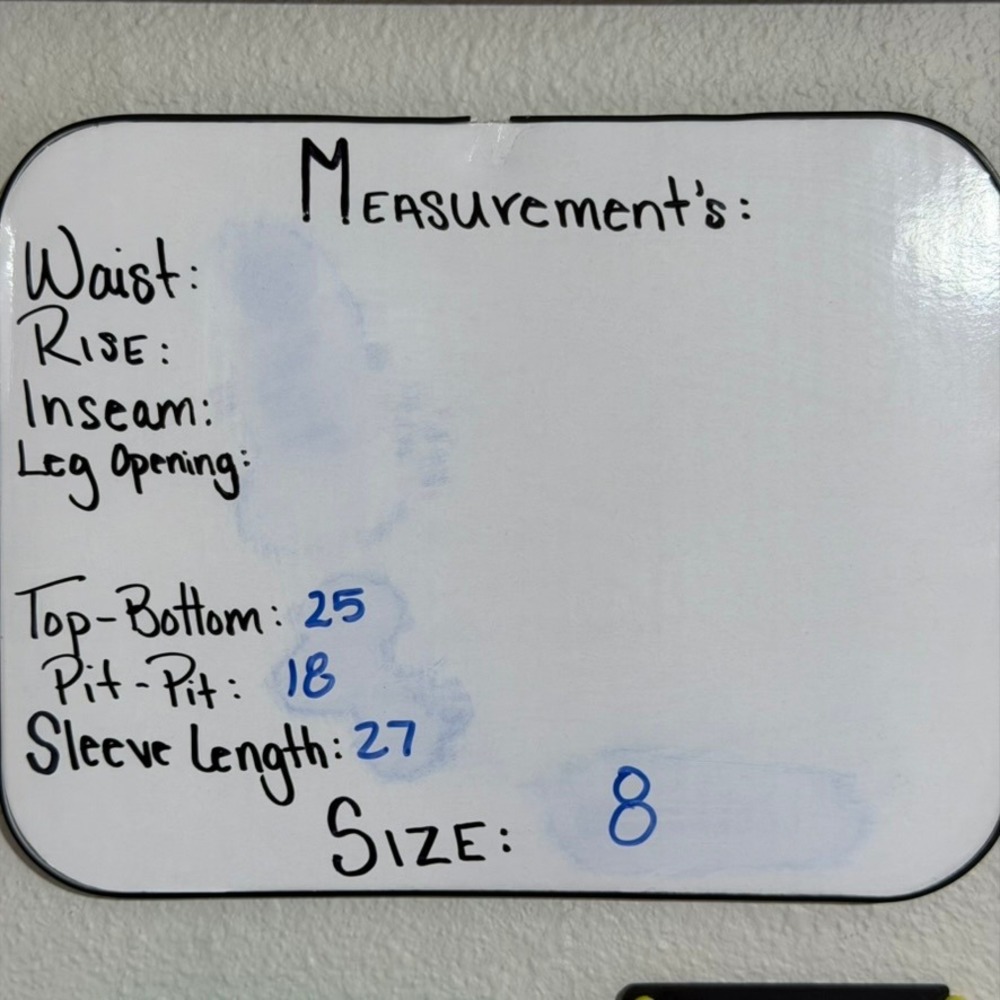 MEASurement's:
Waist:
RISE:
Inseam:
Leg Opening:
Top-Bottom: 25
Pit-Pit: 18
Sleeve Length: 27
SIZE: 8